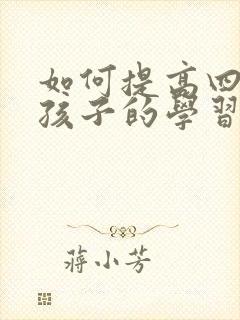 如何提高四
孩子的學習
蔣小芳